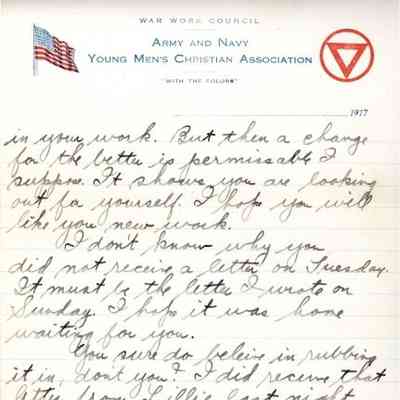 WAR WORK COUNCIL
ARMY AND NAVY
YOUNG MEN'S CHRISTIAN ASSOCIATION
"WITH THE COLORS"
1917
in your work. But then a change
for the better is permissable I
suppose. It shows you are looking
out for yourself. I hope you will
like you new work.
I don't know why you
did not receive a letter on Tuesday.
It must be the letter I wrote on
Sunday. I hope it was home
waiting for you.
You sure do beleive in rubbing
it in, don't you? I did receive that
letter from Lillie last night